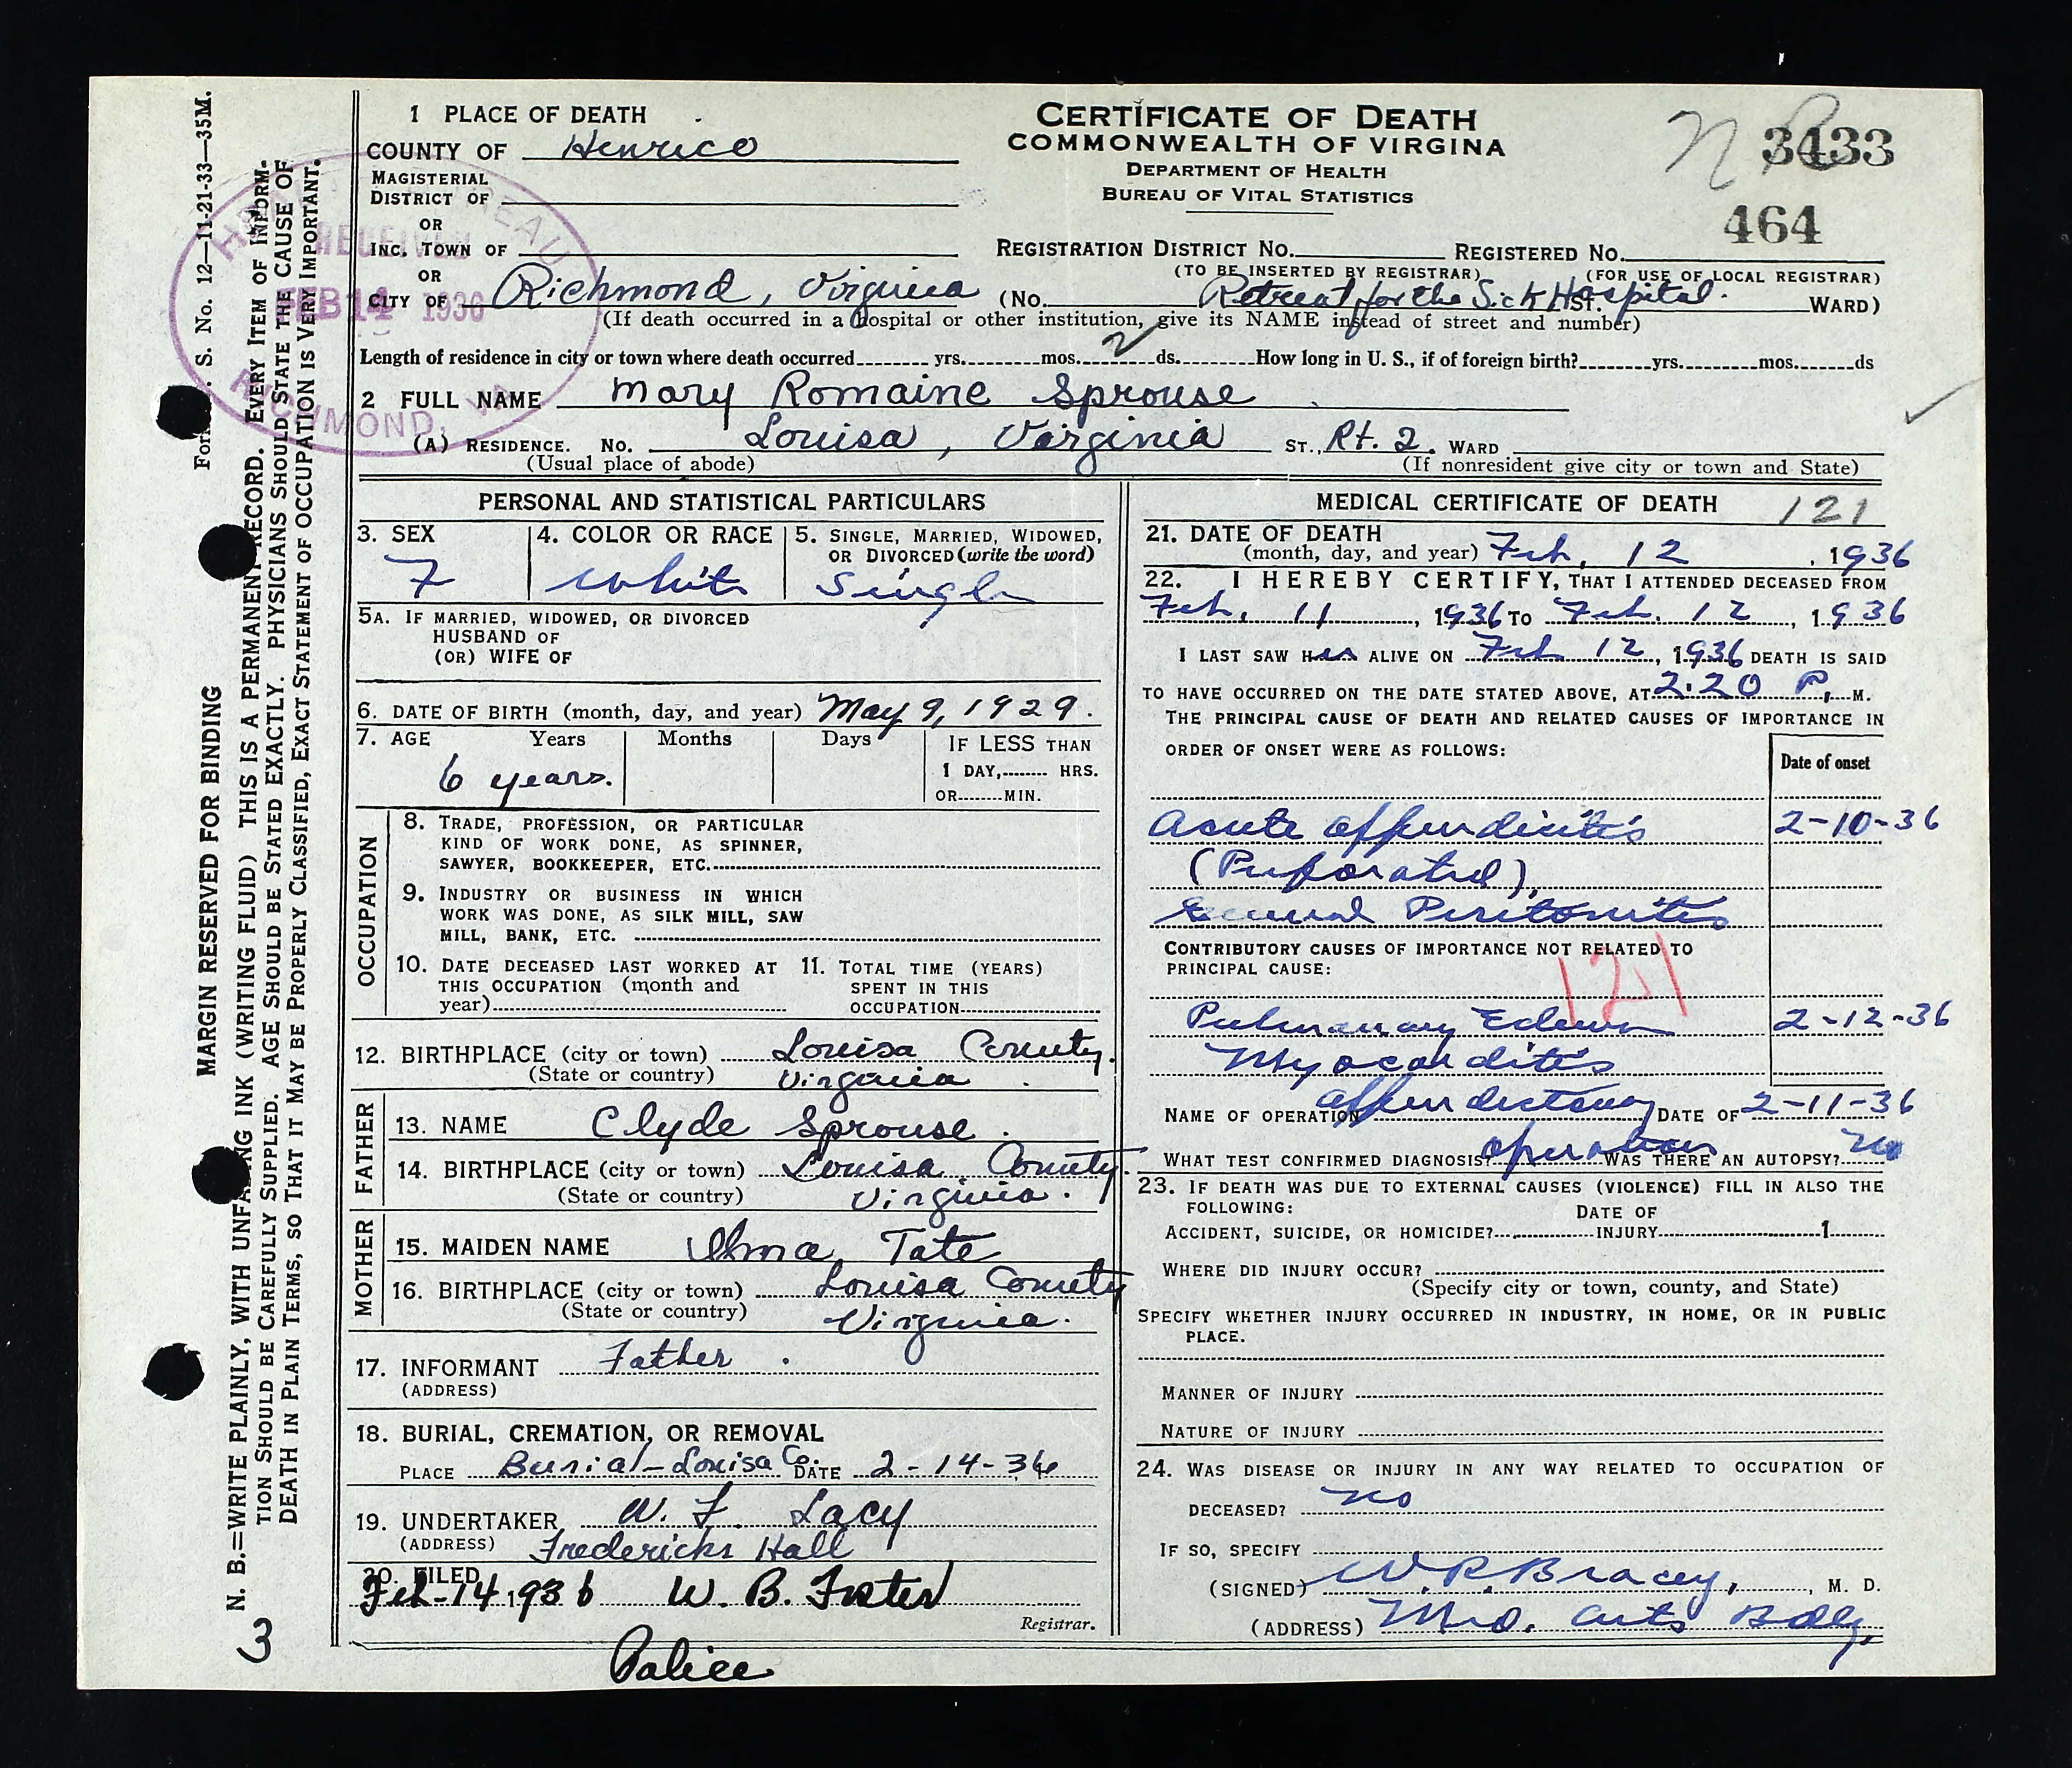 1 PLACE OF DEATH
COUNTY OF Henrico
MAGISTERIAL
DISTRICT OF
OR
INC. TOWN OF
OR
CITY OF Richmond, Virginia (No. Retreat for the Sick Hospital. ST. WARD)
(If death occurred in a hospital or other institution, give its NAME instead of street and number)
CERTIFICATE OF DEATH
COMMONWEALTH OF VIRGINA
DEPARTMENT OF HEALTH
BUREAU OF VITAL STATISTICS
3433
464
REGISTRATION DISTRICT NO. REGISTERED NO.
(TO BE INSERTED BY REGISTRAR) (FOR USE OF LOCAL REGISTRAR)
HEALTH BUREAU
RECEIVED
FEB 14 1936
RICHMOND, VA
Length of residence in city or town where death occurred yrs. mos. 2 ds. How long in U. S., if of foreign birth? yrs. mos. ds
2 FULL NAME Mary Romaine Sprouse
(A) RESIDENCE. No. Louisa, Virginia ST., Rt. 2. WARD
(Usual place of abode) (If nonresident give city or town and State)
PERSONAL AND STATISTICAL PARTICULARS
3. SEX
F
4. COLOR OR RACE
White
5. SINGLE, MARRIED, WIDOWED,
OR DIVORCED (write the word)
Single
5A. IF MARRIED, WIDOWED, OR DIVORCED
HUSBAND OF
(OR) WIFE OF
6. DATE OF BIRTH (month, day, and year) May 9, 1929.
7. AGE Years Months Days IF LESS THAN
1 DAY, HRS.
OR MIN.
6 years.
OCCUPATION
8. TRADE, PROFESSION, OR PARTICULAR
KIND OF WORK DONE, AS SPINNER,
SAWYER, BOOKKEEPER, ETC.
9. INDUSTRY OR BUSINESS IN WHICH
WORK WAS DONE, AS SILK MILL, SAW
MILL, BANK, ETC.
10. DATE DECEASED LAST WORKED AT
THIS OCCUPATION (month and
year)
11. TOTAL TIME (YEARS)
SPENT IN THIS
OCCUPATION
12. BIRTHPLACE (city or town) Louisa County.
(State or country) Virginia
FATHER
13. NAME Clyde Sprouse.
14. BIRTHPLACE (city or town) Louisa County.
(State or country) Virginia.
MOTHER
15. MAIDEN NAME Tate
16. BIRTHPLACE (city or town) Louisa County
(State or country) Virginia.
17. INFORMANT Father.
(ADDRESS)
18. BURIAL, CREMATION, OR REMOVAL
PLACE Burial-Louisa Co. DATE 2-14-36
19. UNDERTAKER W. F. Lacy
(ADDRESS) Fredericks Hall
20. FILED
Feb-14 1936 W. B. Foster
Registrar.
MEDICAL CERTIFICATE OF DEATH 121
21. DATE OF DEATH
(month, day, and year) Feb. 12, 1936
22. I HEREBY CERTIFY, THAT I ATTENDED DECEASED FROM
Feb. 11, 1936 TO Feb. 12, 1936
I LAST SAW HER ALIVE ON Feb 12, 1936 DEATH IS SAID
TO HAVE OCCURRED ON THE DATE STATED ABOVE, AT 2.20 P. M.
THE PRINCIPAL CAUSE OF DEATH AND RELATED CAUSES OF IMPORTANCE IN
ORDER OF ONSET WERE AS FOLLOWS:
Date of onset
Acute appendicitis 2-10-36
(Perforated),
General Peritonitis
CONTRIBUTORY CAUSES OF IMPORTANCE NOT RELATED TO
PRINCIPAL CAUSE:
121
Pulmonary Edema 2-12-36
Myocarditis
NAME OF OPERATION Appendectomy DATE OF 2-11-36
WHAT TEST CONFIRMED DIAGNOSIS? operation WAS THERE AN AUTOPSY? No
23. IF DEATH WAS DUE TO EXTERNAL CAUSES (VIOLENCE) FILL IN ALSO THE
FOLLOWING:
DATE OF
ACCIDENT, SUICIDE, OR HOMICIDE? INJURY 1
WHERE DID INJURY OCCUR?
(Specify city or town, county, and State)
SPECIFY WHETHER INJURY OCCURRED IN INDUSTRY, IN HOME, OR IN PUBLIC
PLACE.
MANNER OF INJURY
NATURE OF INJURY
24. WAS DISEASE OR INJURY IN ANY WAY RELATED TO OCCUPATION OF
DECEASED? no
IF SO, SPECIFY
(SIGNED) W. R. Bracey, M. D.
(ADDRESS) Med. Arts Bldg.
Form V. S. No. 12—11-21-33—35M.
MARGIN RESERVED FOR BINDING
N. B.=WRITE PLAINLY, WITH UNFADING INK (WRITING FLUID) THIS IS A PERMANENT RECORD. EVERY ITEM OF INFORM-
TION SHOULD BE CAREFULLY SUPPLIED. AGE SHOULD BE STATED EXACTLY. PHYSICIANS SHOULD STATE THE CAUSE OF
DEATH IN PLAIN TERMS, SO THAT IT MAY BE PROPERLY CLASSIFIED, EXACT STATEMENT OF OCCUPATION IS VERY IMPORTANT.
3